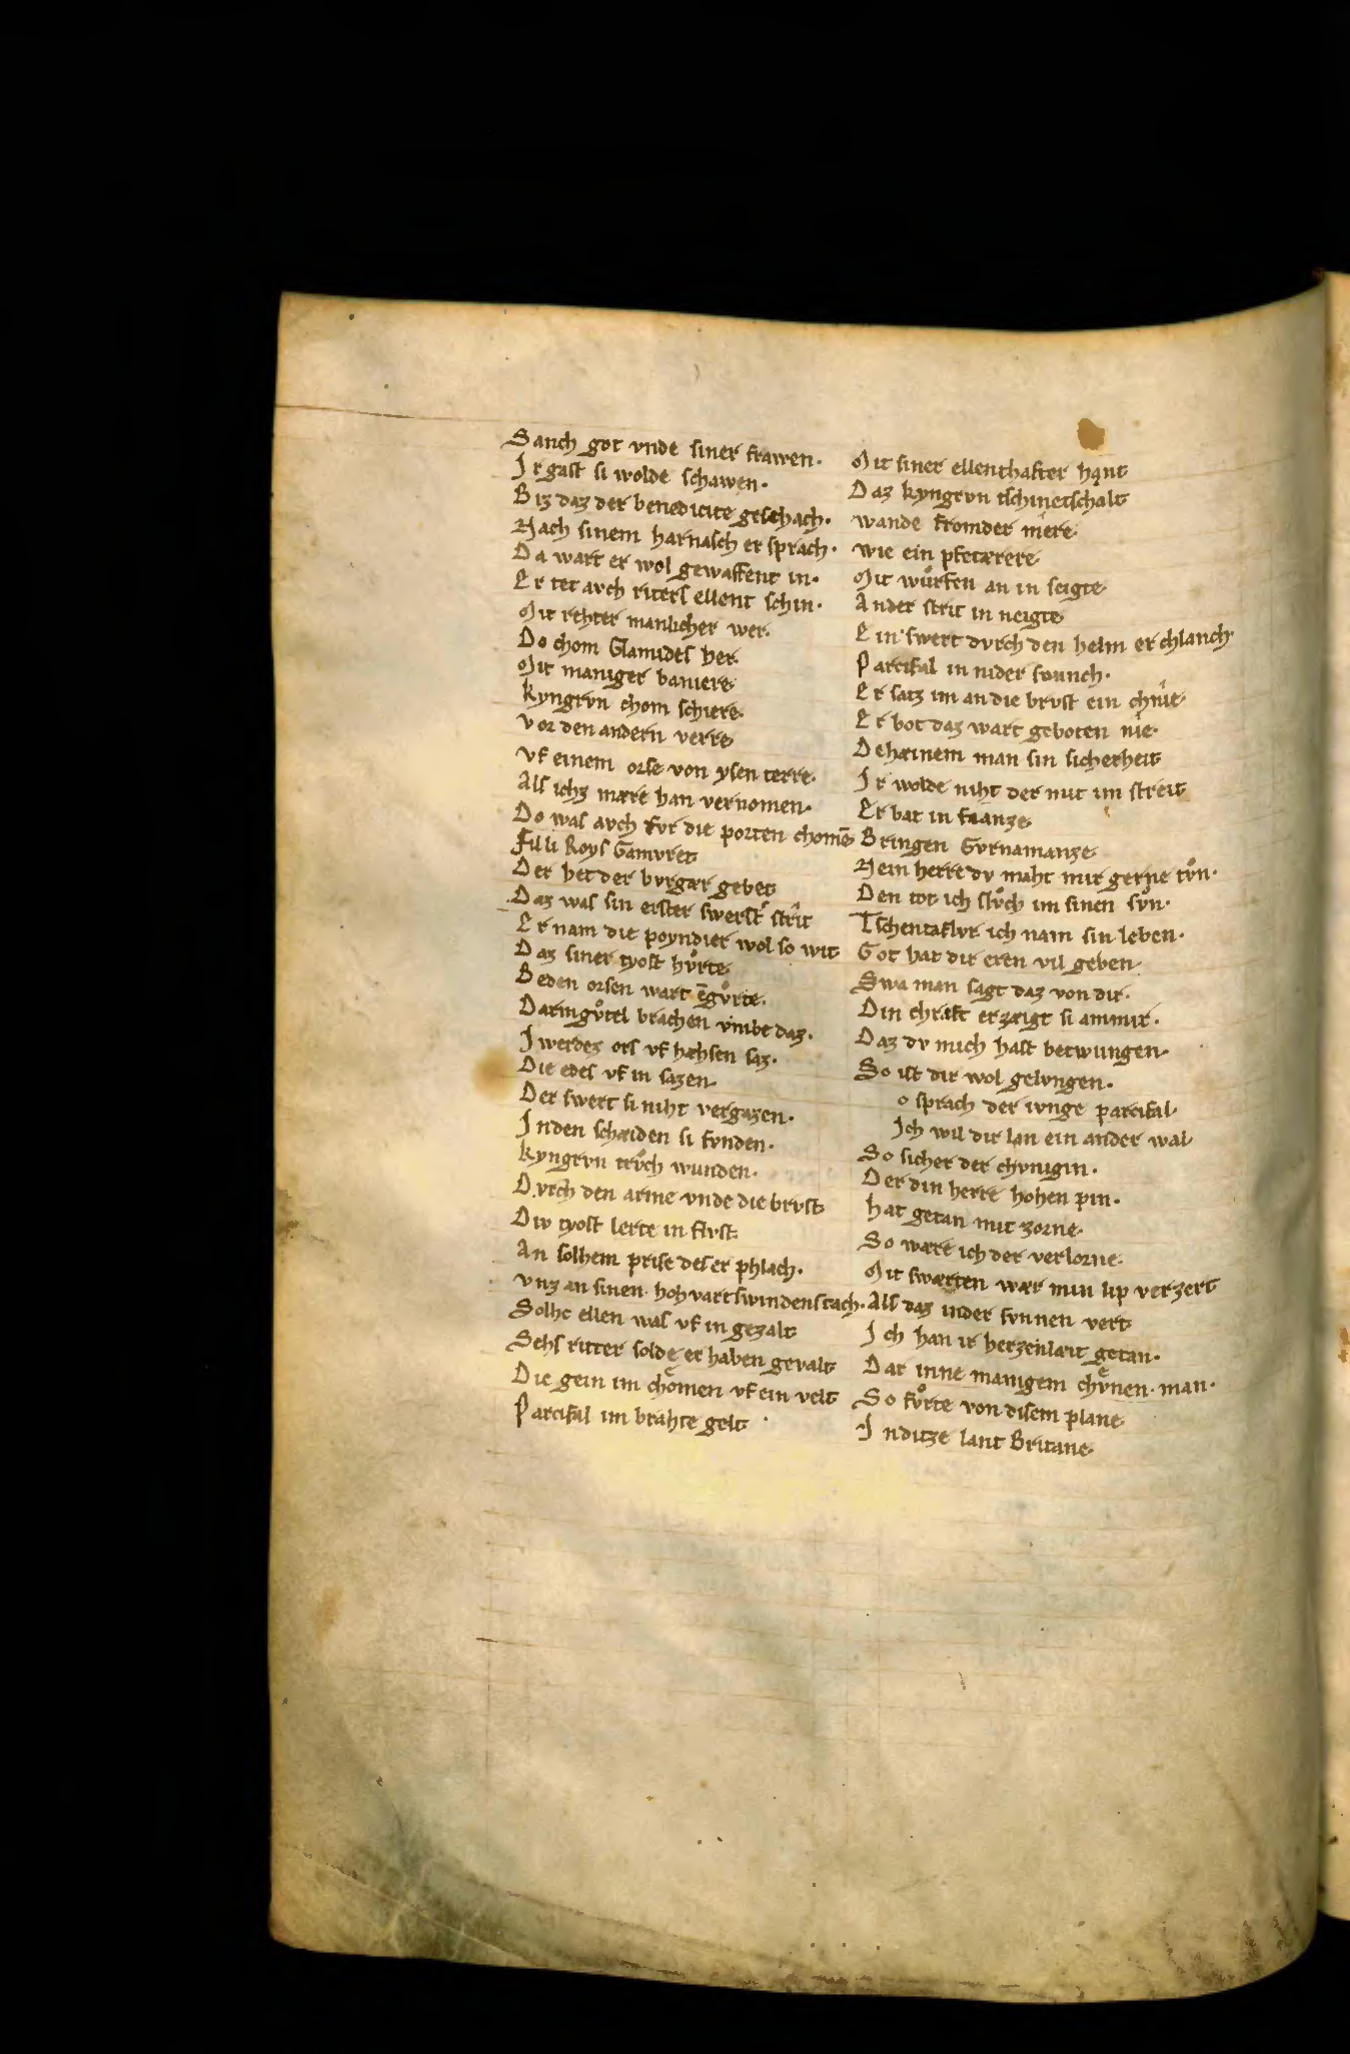 Sanch got vnde siner frawen·
Ir gast si wolde schawen·
Biz daz der benedicite geschach·
Nach sinem harnasch er sprach·
Da wart er wol gewaffent in·
Er tet avch riters ellent schin·
Mit rehter manlicher wer·
Do chom Glamides her·
Mit maniger baniere·
Kyngrvn chom schiere·
Vor den andern verre·
Vf einem orse von ysen terre·
Als ichz mære han vernomen·
Do was avch fvr die porten chomē·
Fil li Roys Gamvret·
Der het der bvrgær gebet·
Daz was sin erster swerst strît
Er nam die poyndier wol so wit
Daz siner tyost hv̊rte·
Beden orsen wart ēgv̊rte·
Darmgv̊rtel brachen vmbe daz·
Iwedez ors vf hæhsen saz·
Die edes vf in sazen·
Der swert si niht vergazen·
In den schæiden si fvnden·
Kyngrvn trv̊ch wunden·
Dvrch den arme vnde die brvst·
Div tyost lerte in flvst·
An solhem prise des er phlach·
Vnz an sinen hohvart swindens tach·
Solhe ellen was vf in gezalt·
Sehs ritter solde er haben gevalt·
Die gein im chomen vf ein velt·
Parcifal im brahte gelt·
Mit siner ellenthafter hant·
Daz kyngrvn tschinetschalt·
wande fromder mêre·
wie ein pfetærere·
Mit wůrfen an in seigte·
Ander strit in neigte·
Ein swert dvrch den helm erchlanch·
Parcifal in nider swnch·
Er satz im an die brvst ein chnîe·
Er bot daz wart geboten nîe·
Dehæinem man sin sicherheit·
Ir wolde niht der mit im streit·
Er bat in fianze·
Bringen Gvrnamanze·
Nein herre dv maht mir gerne tv̊n·
Den tot ich slv̊ch im sinen sv̊n·
Tschentaflvr ich nam sin leben·
Got hat dir eren vil geben·
Swa man sagt daz von dir·
Din chraft erzæigt si an mir·
Daz dv mich hast betwungen·
So ist dir wol gelvngen·
o sprach der ivnge parcifal·
Ich wil dir lan ein ander wal·
So sicher der chvnigin·
Der din herre hohen pin·
Hat getan mit zorne·
So wære ich der verlorne·
Mit swærten wær min lip verzert·
Als daz inder svnnen vert·
Ich han ir herzenlæit getan·
Dar inne manigem chv̊nen man·
So fv̊rte von disem plane·
In ditze lant Britane·